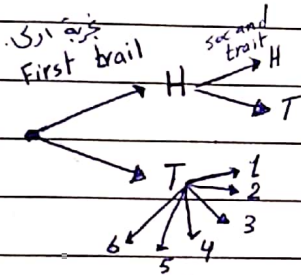 تجربة اولى.
First trail
second
trait
H
H
T
T
1
2
3
4
5
6